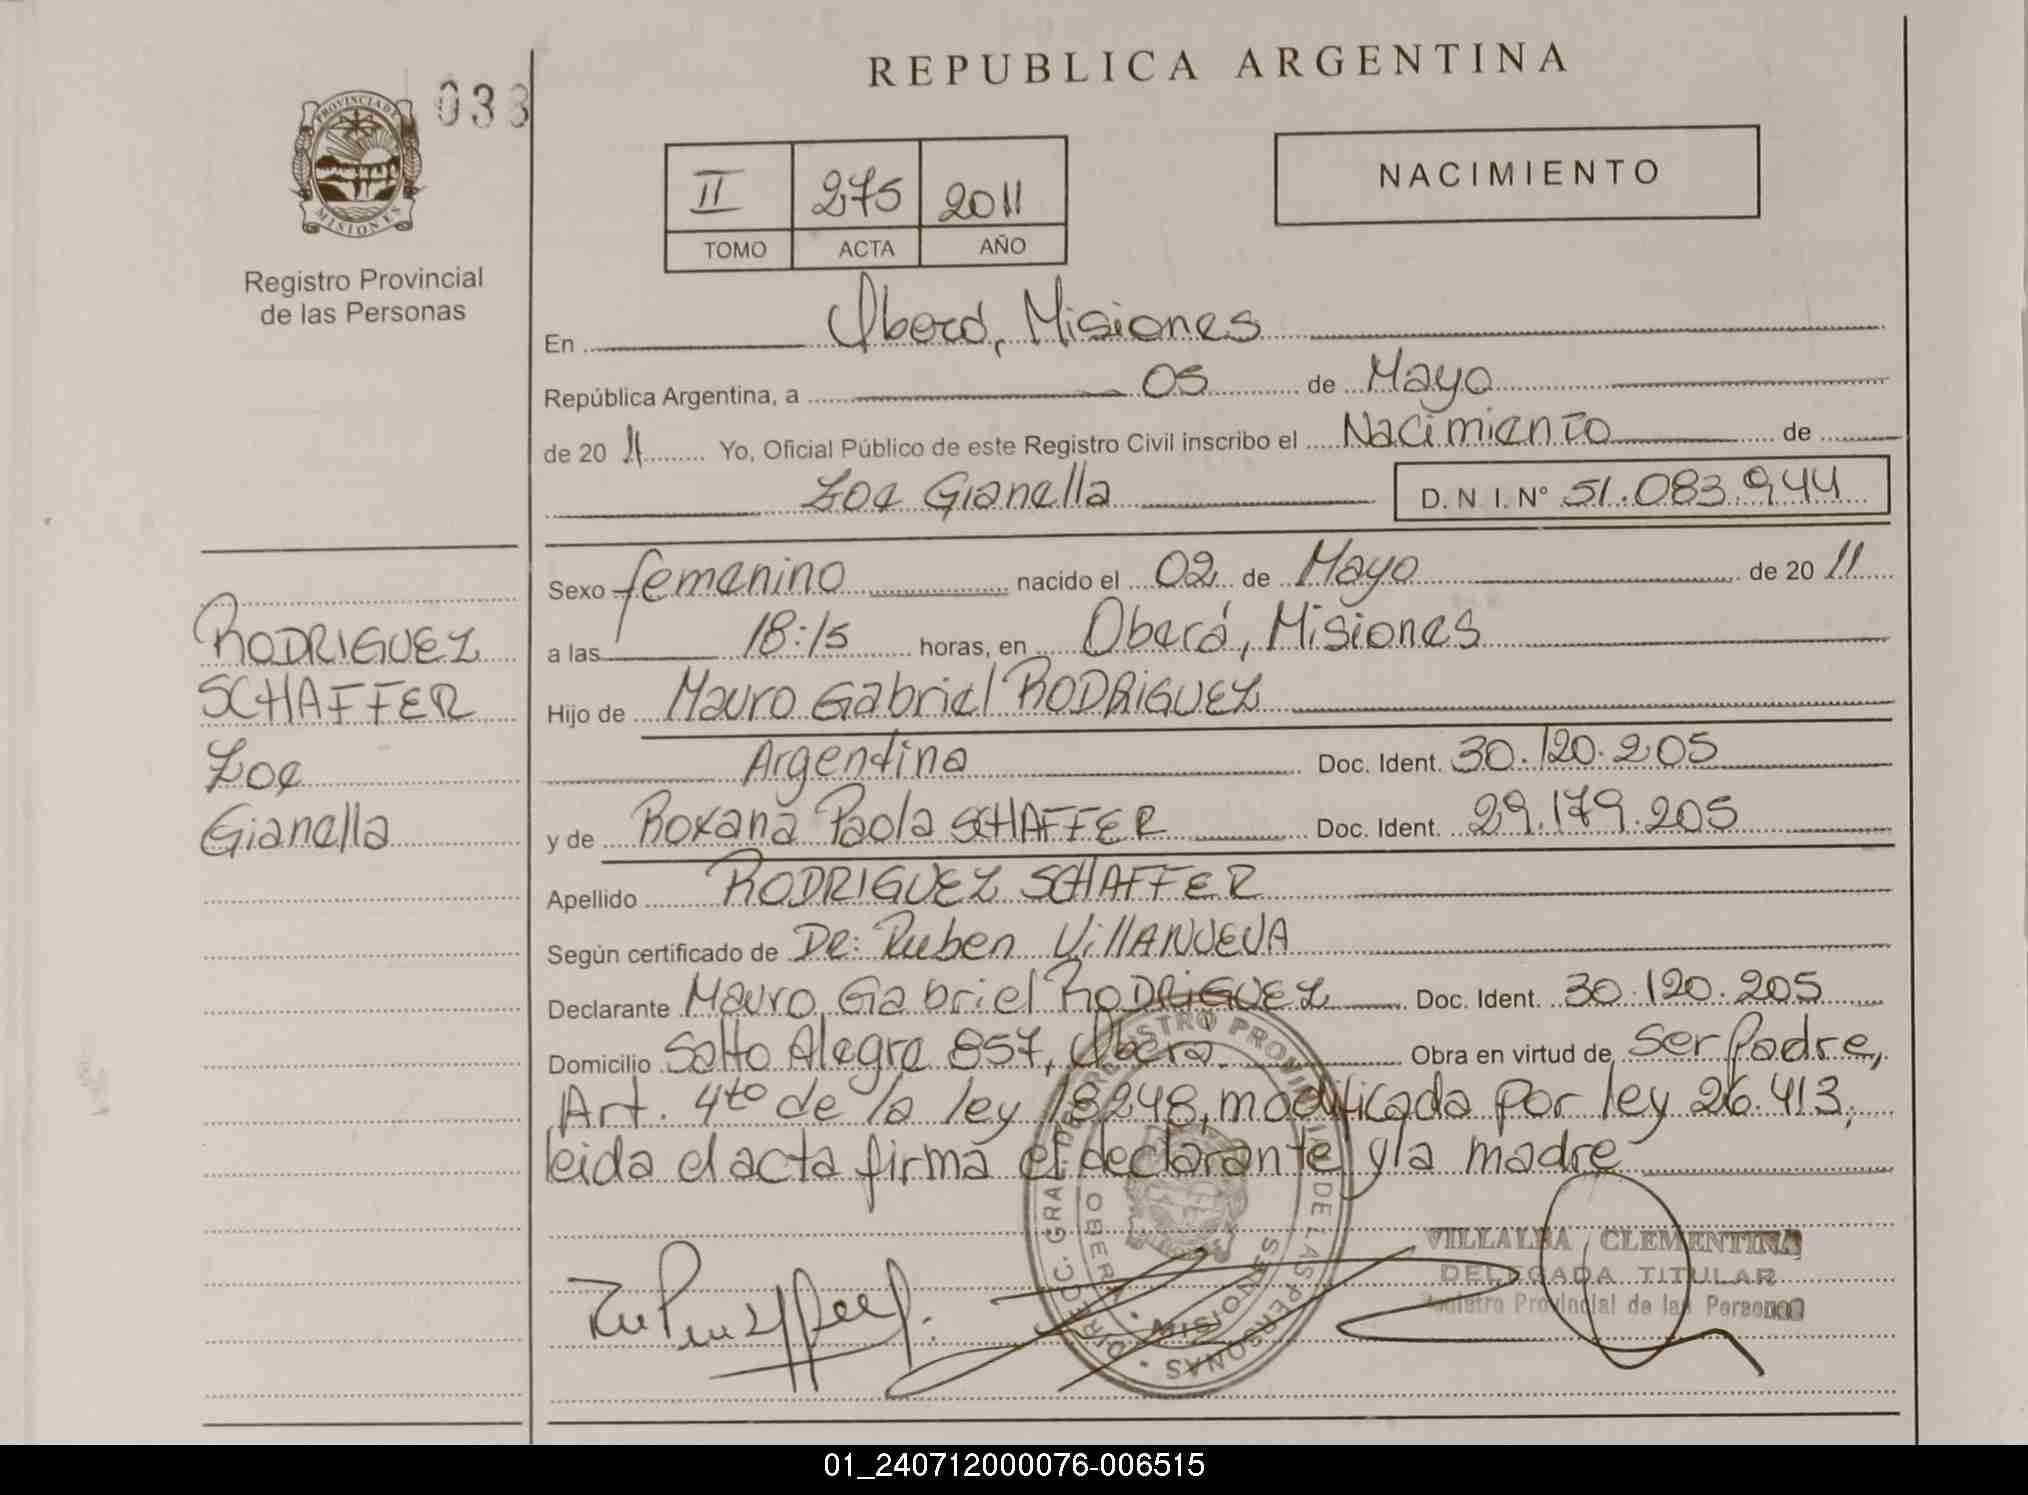 REPUBLICA ARGENTINA
033
PROVINCIA DE
MISIONES
Registro Provincial
de las Personas
II 275 2011
TOMO ACTA AÑO
NACIMIENTO
En Oberá, Misiones
República Argentina, a 05 de Mayo
de 20 11 Yo, Oficial Público de este Registro Civil inscribo el Nacimiento de
Zoe Gianella D.N.I.N° 51.083.944
Sexo femenino nacido el 02 de Mayo de 20 11
a las 18:15 horas, en Oberá, Misiones
Hijo de Mauro Gabriel RODRIGUEZ
Argentina Doc. Ident. 30.120.205
y de Roxana Paola SCHAFFER Doc. Ident. 29.179.205
Apellido RODRIGUEZ SCHAFFER
Según certificado de DR: Ruben VillANUEVA
Declarante Mauro Gabriel RODRIGUEZ Doc. Ident. 30.120.205
Domicilio Salto Alegre 857, Oberá. Obra en virtud de ser Padre,
Art. 4to de la ley 18248, modificada por ley 26.413,
leida el acta firma el declarante y la madre
RODRIGUEZ
SCHAFFER
Zoe
Gianella
DIRECC. GRAL. DE REGISTRO PROVINCIAL DE LAS PERSONAS
OBERA MISIONES
VILLALBA CLEMENTINA
DELEGADA TITULAR
Registro Provincial de las Personas
01_240712000076-006515